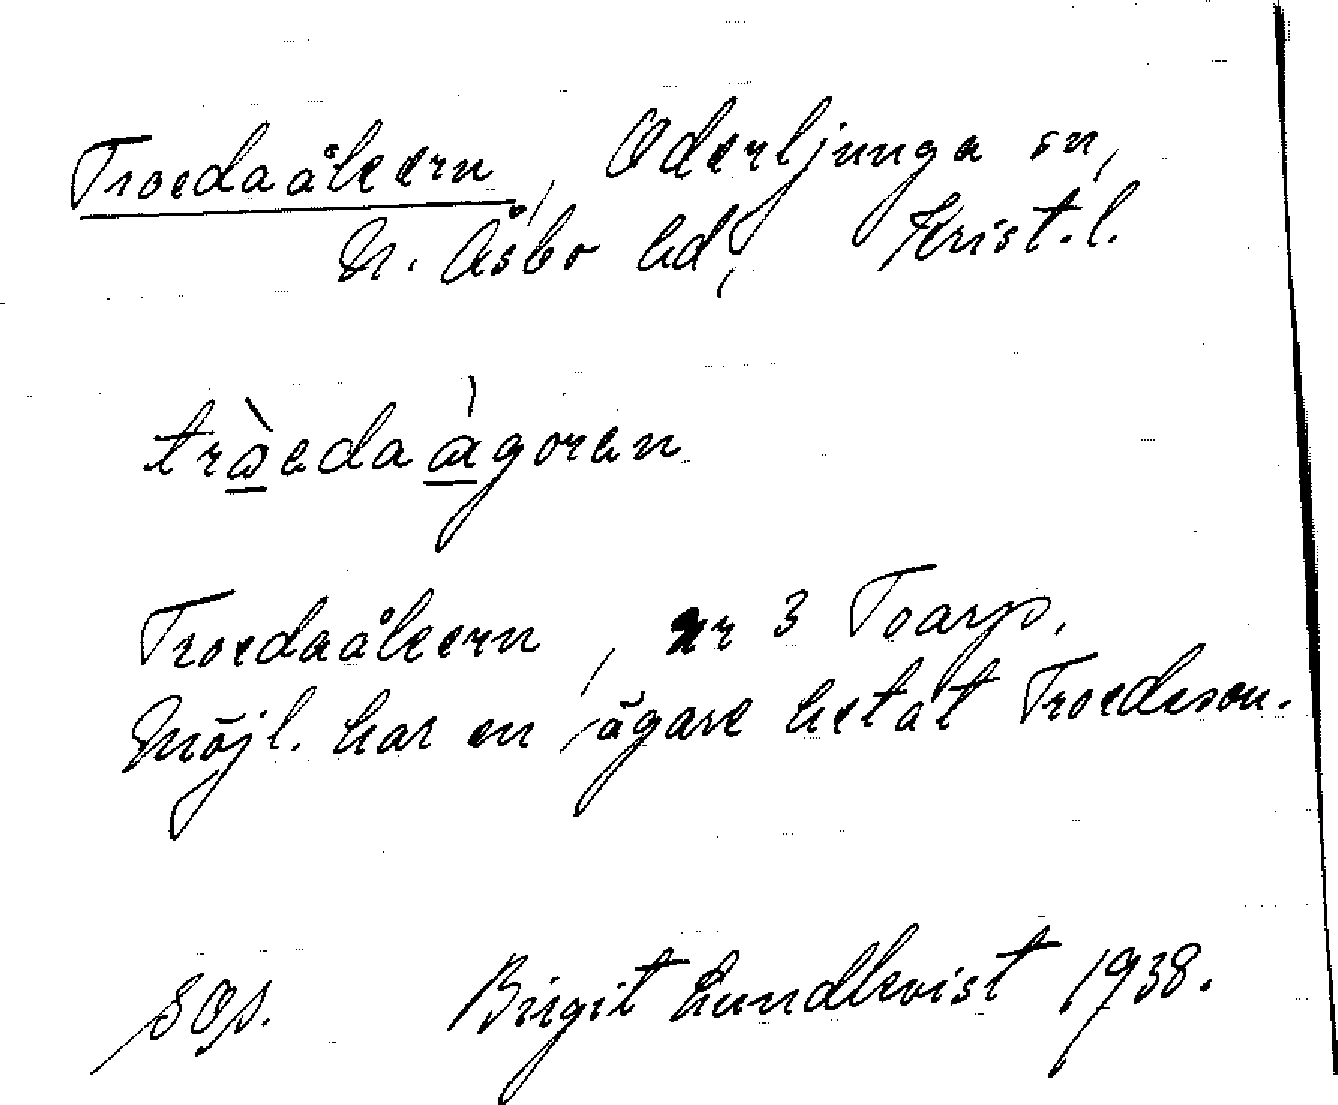 Troedaåkern, Oderljunga sn,
N. Åsbo hd, Krist.l.
tràedaàgoren
Troedaåkern, nr 3 Toarp.
Möjl. har en ägare hetat Troedsson.
Birgit Lundkvist 1938.